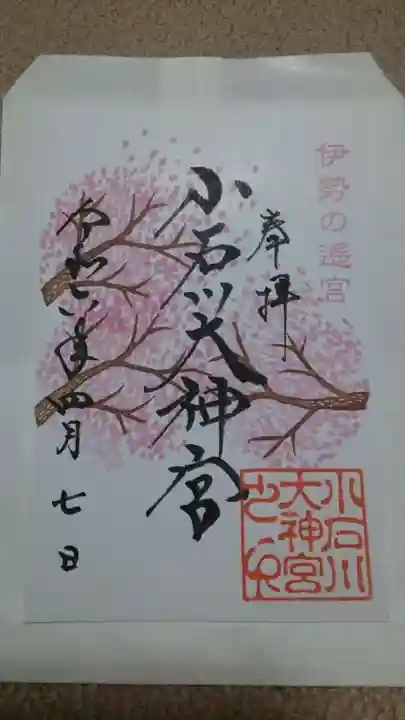 伊勢の遥宮
奉拝
小石川大神宮
令和六年四月七日
小石川
大神宮